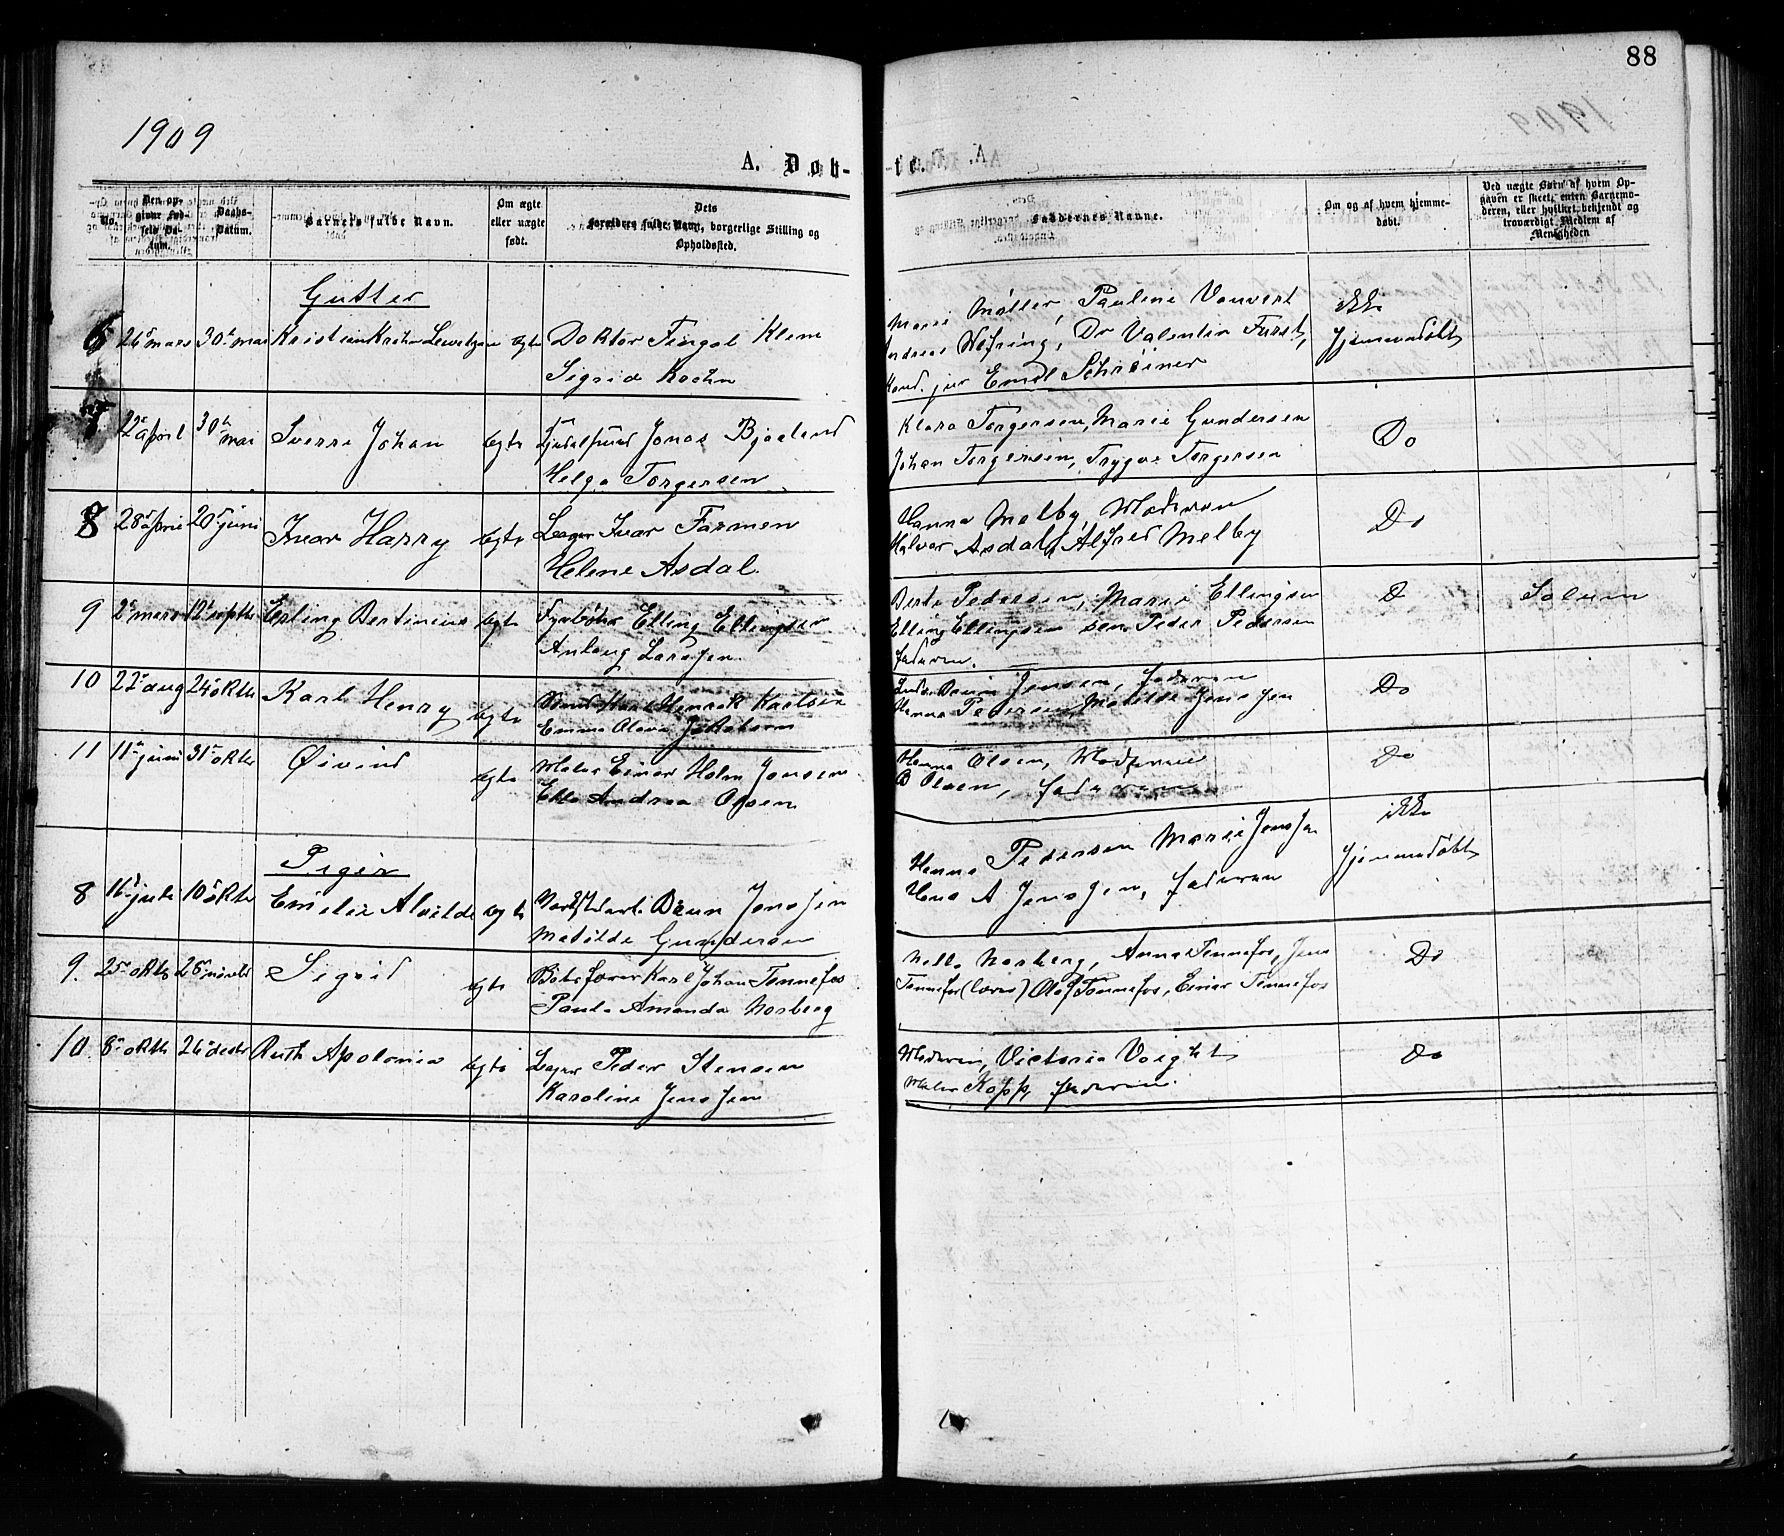 88
1909
A. Døb-
te.
No.
Den op-
givne Fød-
sels Da-
tum.
Daabs-
Datum.
Barnets fulde Navn.
Om ægte
eller uægte
født.
Dets
Forældres fulde Navn, borgerlige Stilling og
Opholdssted.
Faddernes Navne.
Om og af hvem hjemme-
døbt.
Ved uægte Børn af hvem Op-
gaven er skeet, enten Barnemo-
deren, eller hvilket bekjendt og
troværdigt Medlem af
Menigheden
Gutter
6 26 mars 30te mai Kristian Krohn ægte Doktor Fingal Klem
Sigrid Krohn
Marie Møller, Pauline Vauvert
Andreas Wefring, Dr Valentin Furst,
Kand. jur Emil Schreiner
ikke
hjemmedøbt
7 2 april 30te mai Sverre Johan ægte Jonas Bjaaland
Helga Torgersen
Klara Torgersen, Marie Gundersen
Johan Torgersen, Trygve Torgersen
Do
8 28 april 20 juni Ivar Harry ægte Ivar Farmen
Helene Asdal
Hanna Melby, Moderen
Halvor Asdal, Alfred Melby
Do
9 2 mars 12 septbr Erling Bertinius ægte Fyrbøter Elling Ellingsen
Anlaug Larsen
Berte Pedersen, Marie Ellingsen
Elling Ellingsen sen. Peder Pedersen
faderen.
Do
Solum
10 22 aug 24 oktbr Karl Henry ægte Karl Henrik Karlsen
Emma Olava Jakobsen
Jensen, faderen
Hanna Pedersen, Matilde Jenssen
Do
11 11 juni 31 oktbr Øivind ægte Maler Einar Holm Jensen
Ella Andrea Olsen
Hanna Olsen, Moderen
B Olsen, faderen
Do
Piger
8 16 juli 10 oktbr Emelie Alvilde ægte Braun Jenssen
Matilde Gundersen
Hanna Pedersen Marie Jenssen
Hans A Jenssen, faderen
ikke
hjemmedøbt
9. 25 oktbr 28 novebr Sigrid ægte Karl Johan Tennefos
Paula Amanda Norberg
Nella Norberg, Anna Tennefos, Jens
Tennefos (Larvik) Olaf Tennefos, Einar Tennefos
Do
10 8 oktbr 26 desbr Ruth Apolonia ægte Peder Stensen
Karoline Jenssen
Moderen, Victoria Voight
Maler Kopp, faderen.
Do